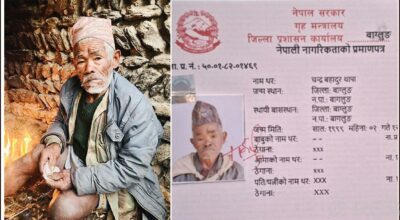 नेपाल सरकार
गृह मन्त्रालय
जिल्ला प्रशासन कार्यालय, बाग्लुङ
नेपाली नागरिकताको प्रमाणपत्र
प्र. नं. : ५०-०१-८२-०१४६९
नाम थर: चन्द्र बहादुर थापा
जन्म स्थान: जिल्ला: बाग्लुङ
न.पा.: बाग्लुङ
स्थायी बासस्थान: जिल्ला: बाग्लुङ
न.पा.: बाग्लुङ
जन्म मिति: साल: १९९९ महिना: ०२ गते
बाबुको नाम थर: --
ठेगाना: xxx
आमाको नाम थर: --
ठेगाना: xxx
पति/पत्नीको नाम थर: XXX
ठेगाना: XXX